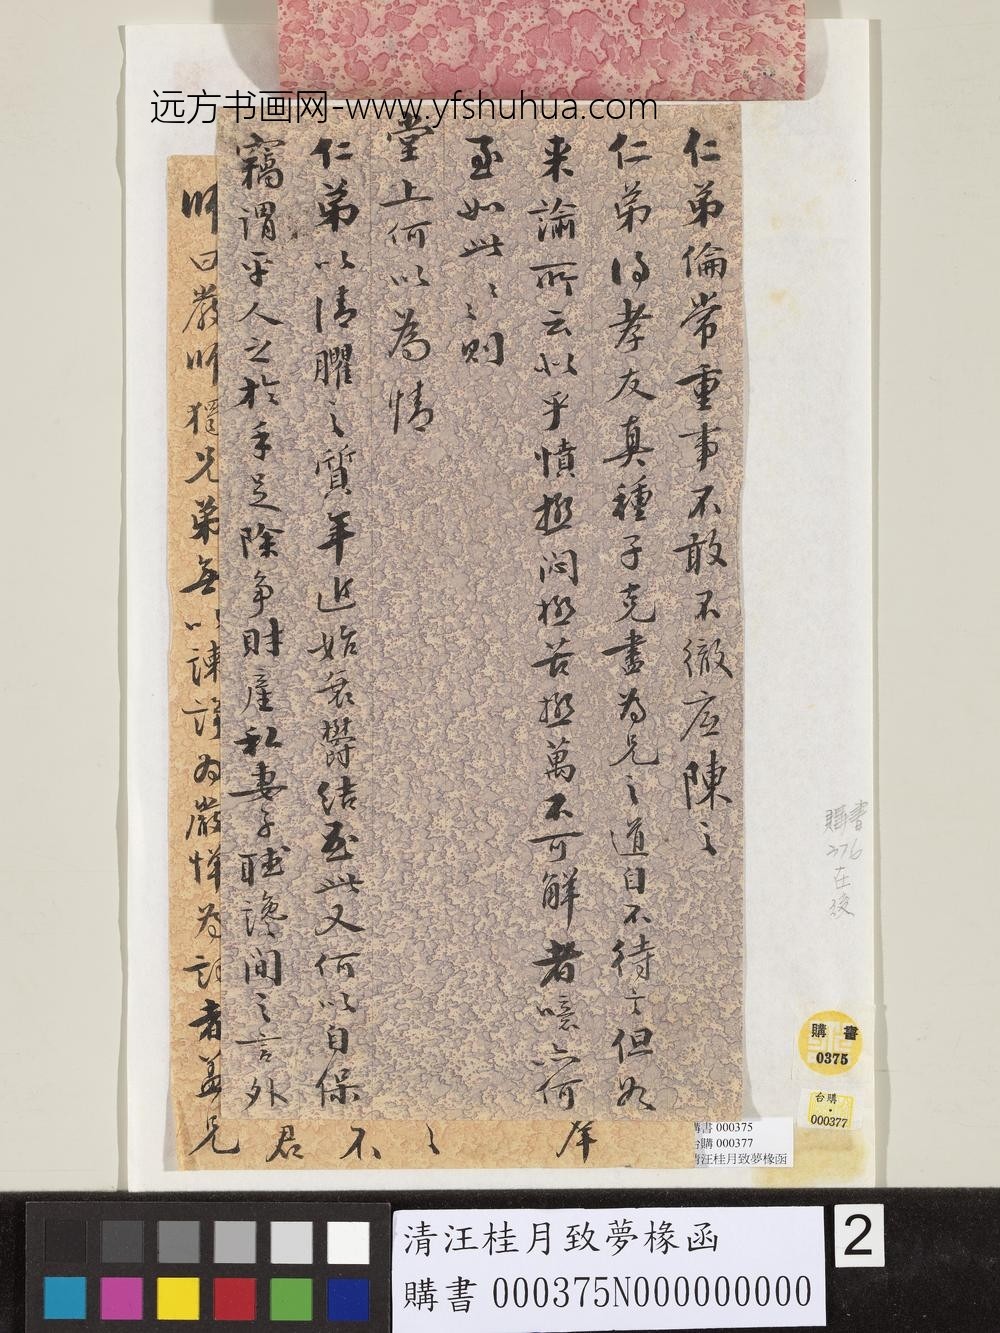 远方书画网-www.yfshuhua.com
仁弟倫常重事不敢不徹底陳之
仁弟得孝友真種子克盡為兄之道自不待言但如
来論所云似乎憤極悶極苦極萬不可解者噫亦何
至如此〻〻則
堂上何以為情
仁弟以清臞之質年近始衰鬱結至此又何以自保
竊謂平人之於手足除争財產私妻子聴讒間之言外
師曰嚴師獨兄弟無以諫諍為嚴憚為訓者盖兄
君
不
之
購書
376
在後
購書
0375
台購
·
000377
購書 000375
台購 000377
清汪桂月致夢椽函
清汪桂月致夢椽函
購書 000375N000000000
2